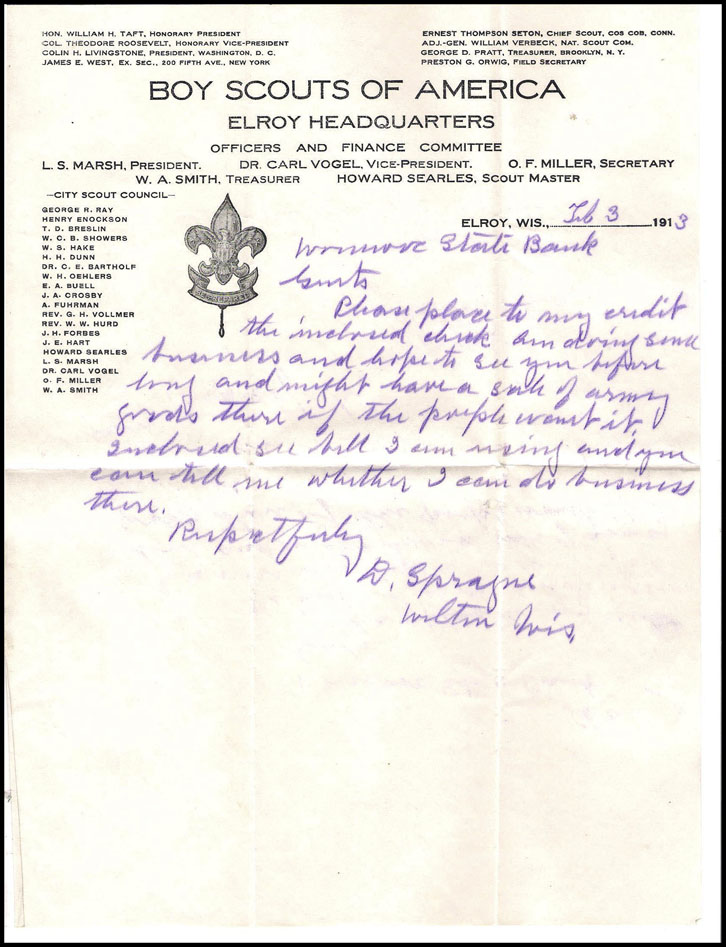 HON. WILLIAM H. TAFT, HONORARY PRESIDENT
COL. THEODORE ROOSEVELT, HONORARY VICE-PRESIDENT
COLIN H. LIVINGSTONE, PRESIDENT, WASHINGTON, D. C.
JAMES E. WEST, EX. SEC., 200 FIFTH AVE., NEW YORK
ERNEST THOMPSON SETON, CHIEF SCOUT, COS COB, CONN.
ADJ.-GEN. WILLIAM VERBECK, NAT. SCOUT COM.
GEORGE D. PRATT, TREASURER, BROOKLYN, N. Y.
PRESTON G. ORWIG, FIELD SECRETARY
BOY SCOUTS OF AMERICA
ELROY HEADQUARTERS
OFFICERS AND FINANCE COMMITTEE
L. S. MARSH, PRESIDENT. DR. CARL VOGEL, VICE-PRESIDENT. O. F. MILLER, SECRETARY
W. A. SMITH, TREASURER HOWARD SEARLES, SCOUT MASTER
—CITY SCOUT COUNCIL—
GEORGE R. RAY
HENRY ENOCKSON
T. D. BRESLIN
W. C. B. SHOWERS
W. S. HAKE
H. H. DUNN
DR. C. E. BARTHOLF
W. H. OEHLERS
E. A. BUELL
J. A. CROSBY
A. FUHRMAN
REV. G. H. VOLLMER
REV. W. W. HURD
J. H. FORBES
J. E. HART
HOWARD SEARLES
L. S. MARSH
DR. CARL VOGEL
O. F. MILLER
W. A. SMITH
BE PREPARED
ELROY, WIS., Feb 3 1913
Wonewoc State Bank
Gents
Please place to my credit
the inclosed check Am doing some
business and hope to see you before
long and might have a sale of army
goods there if the people want it.
Inclosed see bill I am using and you
can tell me whether I can do business
there.
Respectfully
D. Sprague
Wilton Wis,